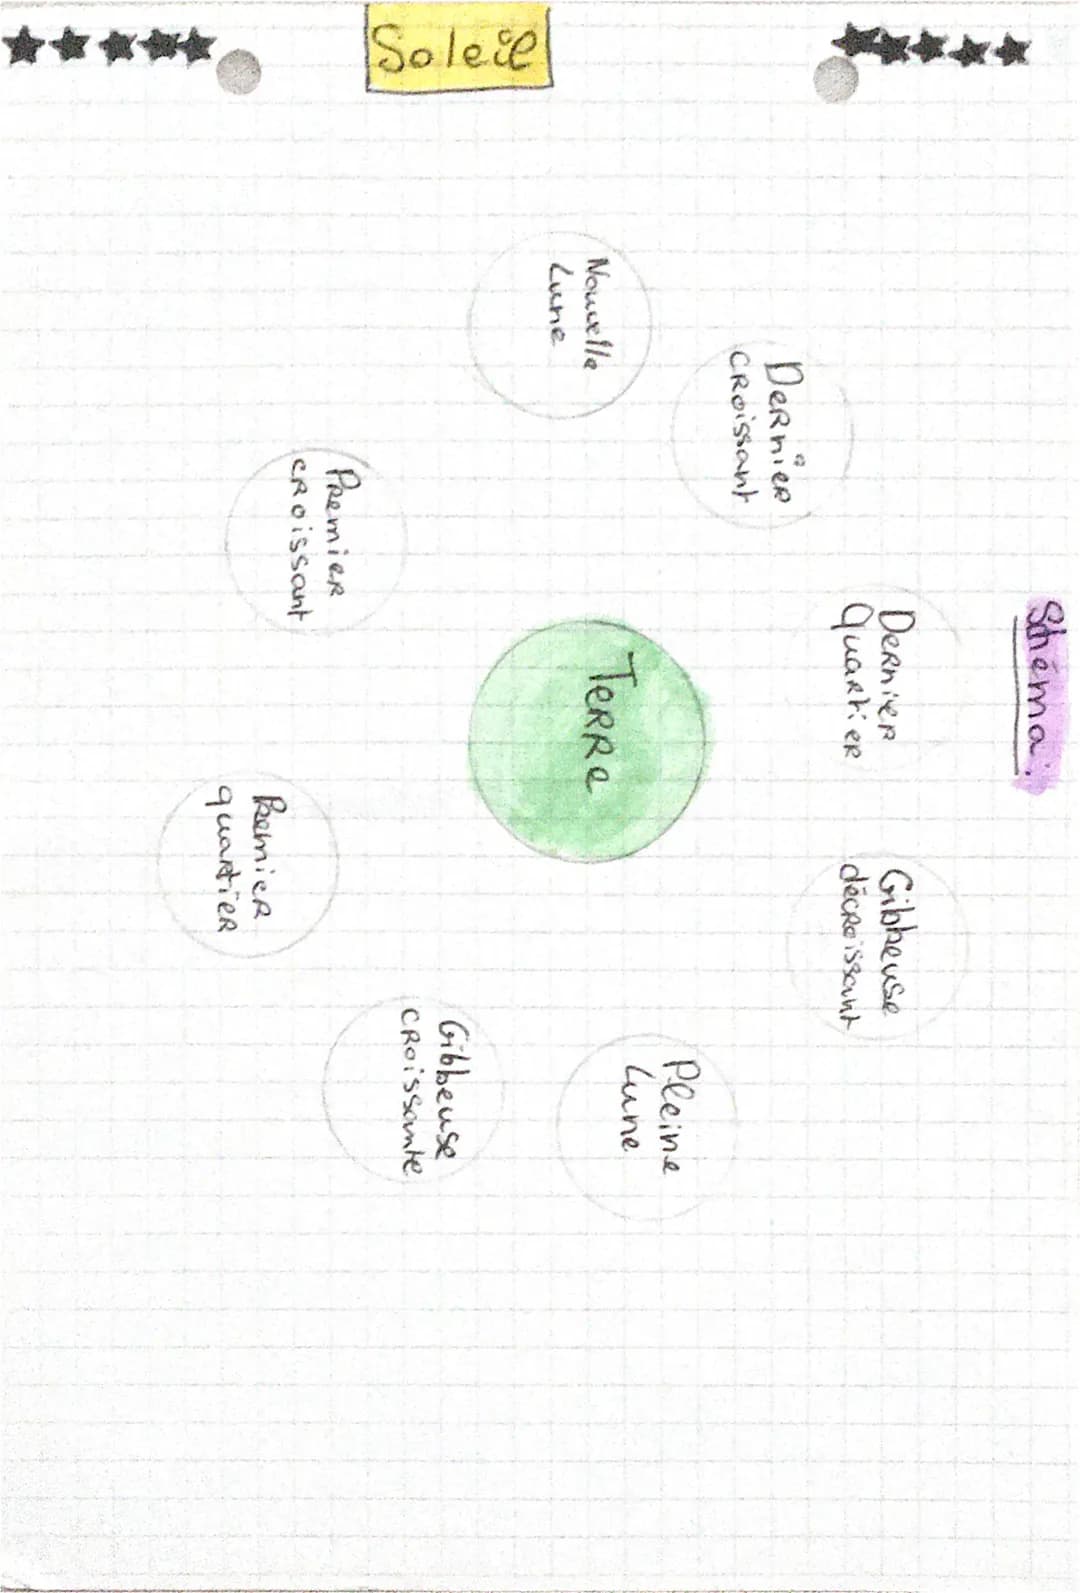 Schéma :
Soleil
Nouvelle
Lune
Dernier
croissant
Premier
croissant
Dernier
quartier
Terre
Premier
quartier
Gibbeuse
décroissant
Gibbeuse
croissante
Pleine
Lune